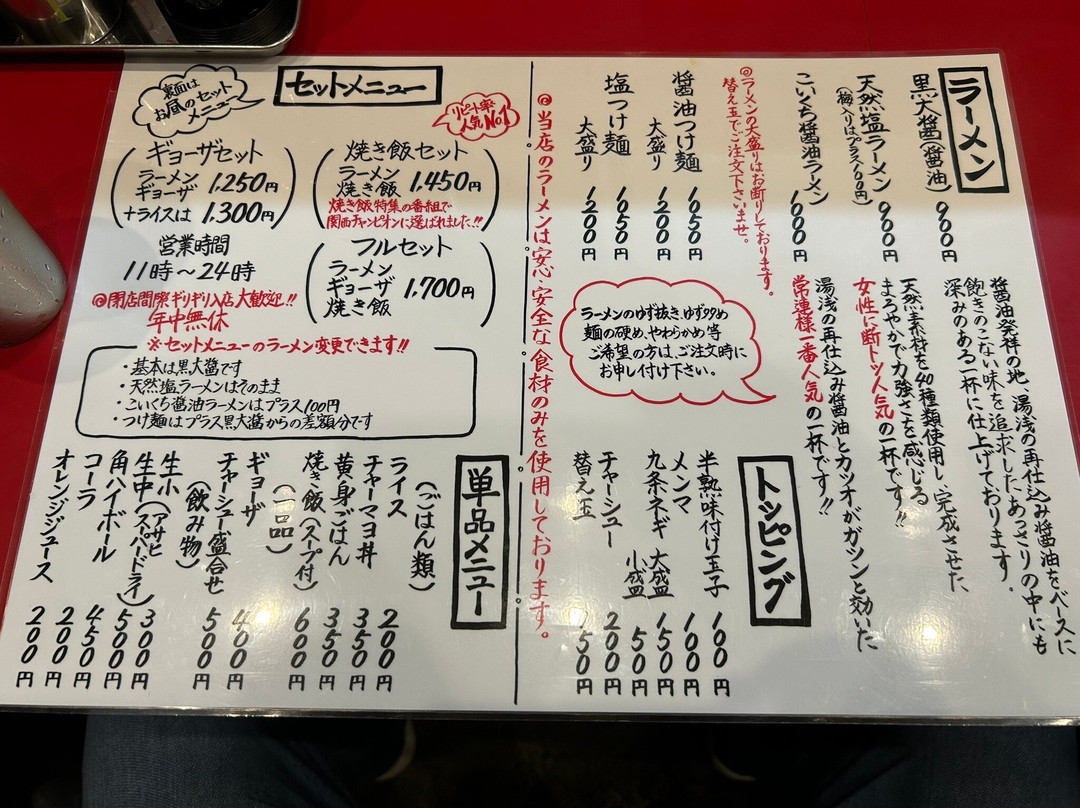 ラーメン
黒大醬(醬油) 900円
醬油発祥の地、湯浅の再仕込み醬油をベースに
飽きのこない味を追求したあっさりの中にも
深みのある一杯に仕上げております。
天然塩ラーメン 900円
(梅入りはプラス100円)
天然素材を40種類使用し、完成させた
まろやかで力強さを感じる
女性に断トツ人気の一杯です!!
こいくち醬油ラーメン 1000円
湯浅の再仕込み醬油とカツオがガシンと効いた
常連様一番人気の一杯です!!
◎ラーメンの大盛りはお断りしております。
替え玉でご注文下さいませ。
醬油つけ麺 1050円
大盛り 1200円
塩つけ麺 1050円
大盛り 1200円
ラーメンのゆず抜き、ゆず多め
麺の硬め、やわらかめ等
ご希望の方は、ご注文時に
お申し付け下さい。
トッピング
半熟味付け玉子 100円
メンマ 100円
九条ネギ 大盛 150円
小盛 50円
チャーシュー 200円
替え玉 150円
◎当店のラーメンは安心・安全な食材のみを使用しております。
セットメニュー
裏面は
お昼のセット
メニュー
リピート率
人気No1
焼き飯セット
ラーメン
焼き飯 1,450円
焼き飯特集の番組で
関西チャンピオンに選ばれました!!
ギョーザセット
ラーメン
ギョーザ 1,250円
+ライスは 1,300円
フルセット
ラーメン
ギョーザ
焼き飯 1,700円
営業時間
11時~24時
◎閉店間際ギリギリ入店大歓迎!!
年中無休
※セットメニューのラーメン変更できます!!
・基本は黒大醬です
・天然塩ラーメンはそのまま
・こいくち醬油ラーメンはプラス100円
・つけ麺はプラス黒大醬からの差額分です
単品メニュー
(ごはん類)
ライス 200円
チャーマヨ丼 350円
黄身ごはん 350円
焼き飯(スープ付) 600円
(一品)
ギョーザ 400円
チャーシュー盛合せ 500円
(飲み物)
生小 300円
生中(アサヒスーパードライ) 500円
角ハイボール 450円
コーラ 200円
オレンジジュース 200円